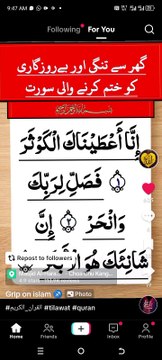 9:47 AM
Following
For You
گھر سے تنگی اور بےروزگاری
کو ختم کرنے والی سورت
إِنَّا أَعْطَيْنَاكَ الْكَوْثَرَ
١ فَصَلِّ لِرَبِّكَ
وَانْحَرْ ٢ إِنَّ
شَانِئَكَ هُوَ
Repost to followers
Grip on islam
Photo
#القرآن_الكريم #tilawat #quran
Home
Inbox
Profile